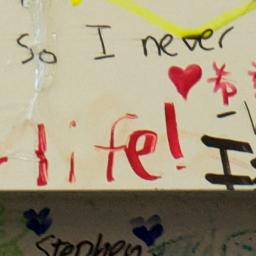 so I never
life! I
Stephen